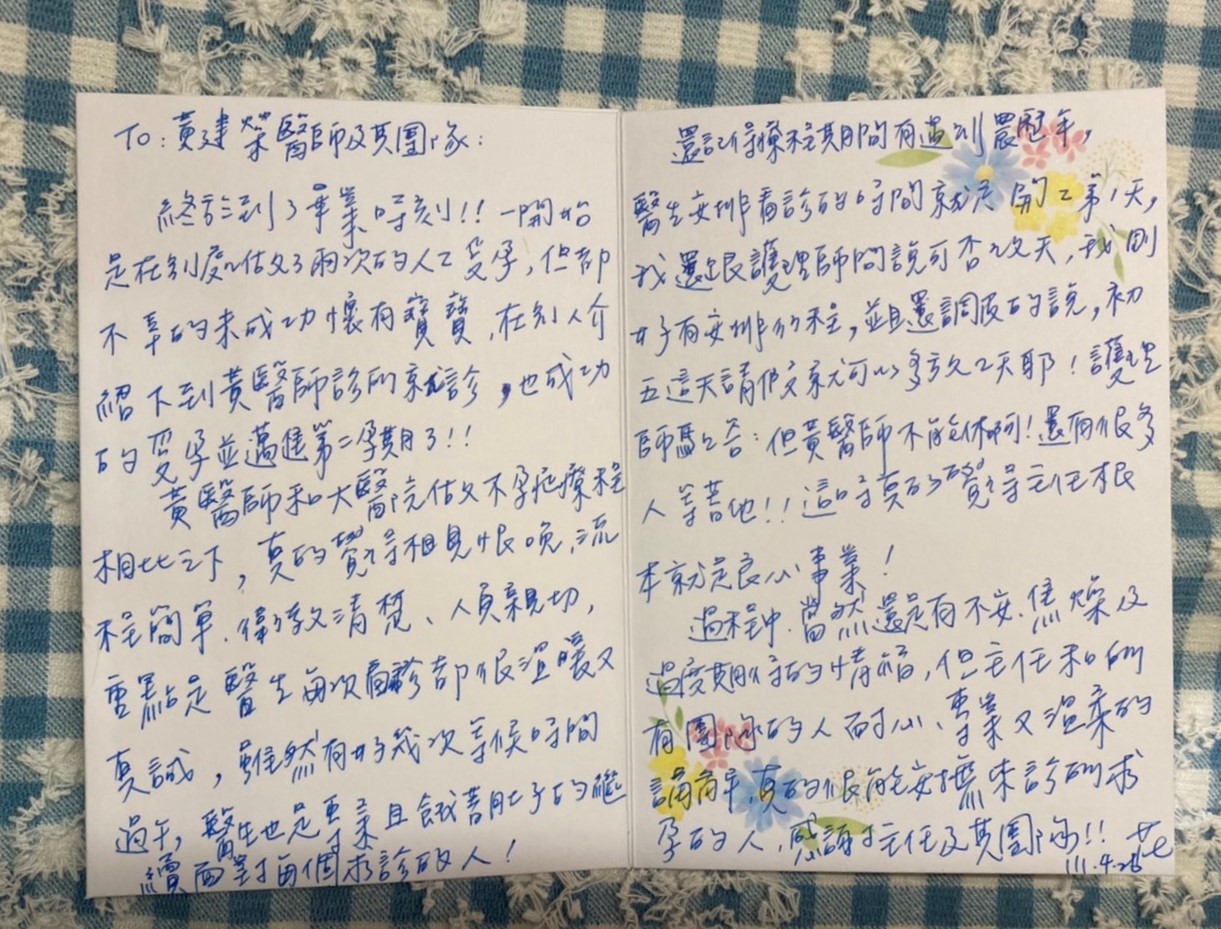 To:黃建榮醫師及其團隊:
終於到了畢業時刻!! 一開始
是在別處做了兩次的人工受孕,但都
不幸的未成功懷有寶寶,在別人介
紹下到黃醫師診所就診,也成功
的受孕並邁進第二孕期了!!
黃醫師和大醫院做不孕症療程
相比之下,真的覺得相見恨晚,流
程簡單、衛教清楚、人員親切,
重點是醫生每次看診都很溫暖又
真誠,雖然有好幾次等候時間
過午,醫生也是專業且餓著肚子的繼
續面對每個求診的人!
還記得療程期間有過到農曆年,
醫生安排看診的時間就是開工第1天,
我還跟護理師問說可否改天,我剛
好有安排行程,並且還調皮的說,初
五這天請假就可以多休2天耶!護理
師馬上答:但黃醫師不能休啊!還有很多
人等著他!!這時真的覺得主任根
本就是良心事業!
過程中當然還是有不安、焦燥及
過度期待的情緒,但主任和所
有團隊的人耐心、專業又溫柔的
講解,真的很能安撫來診所求
孕的人,感謝主任及其團隊!!
111.4.28